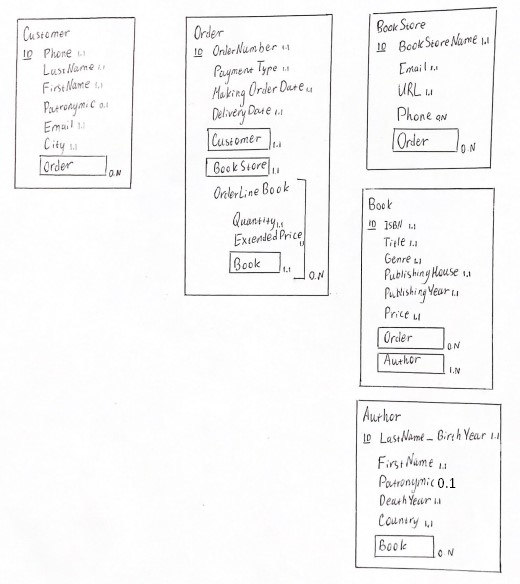 Customer
ID Phone 1.1
LastName 1.1
FirstName 1.1
Patronymic 0.1
Email 1.1
City 1.1
Order 0.N
Order
ID OrderNumber 1.1
Payment Type 1.1
Making Order Date 1.1
Delivery Date 1.1
Customer 1.1
BookStore 1.1
OrderLine Book
Quantity 1.1
Extended Price 1.1
Book 1.1
0.N
BookStore
ID BookStoreName 1.1
Email 1.1
URL 1.1
Phone 0.N
Order 0.N
Book
ID ISBN 1.1
Title 1.1
Genre 1.1
PublishingHouse 1.1
PublishingYear 1.1
Price 1.1
Order 0.N
Author 1.N
Author
ID LastName_BirthYear 1.1
FirstName 1.1
Patronymic 0.1
DeathYear 1.1
Country 1.1
Book 0.N